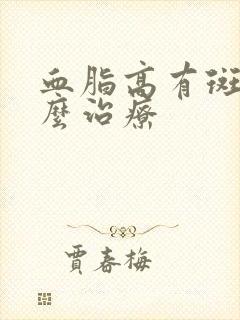 血脂高有斑
麼治療
賈春梅